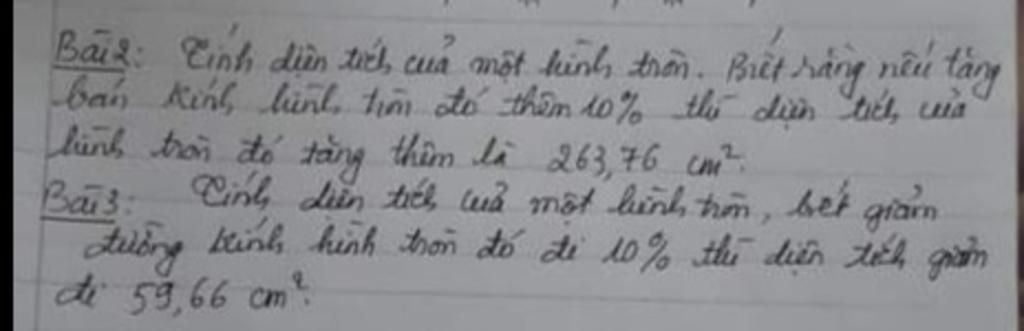 Bài 2: Tính diện tích của một hình tròn. Biết rằng nếu tăng
bán kính hình tròn đó thêm 10% thì diện tích của
hình tròn đó tăng thêm là 263,76 cm².
Bài 3: Tính diện tích của một hình tròn, biết giảm
đường kính hình tròn đó đi 10% thì diện tích giảm
đi 59,66 cm².